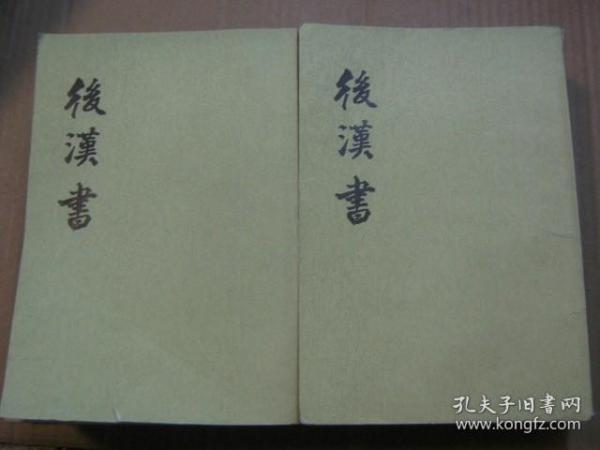 後漢書
後漢書
孔夫子旧書网
www.kongfz.com